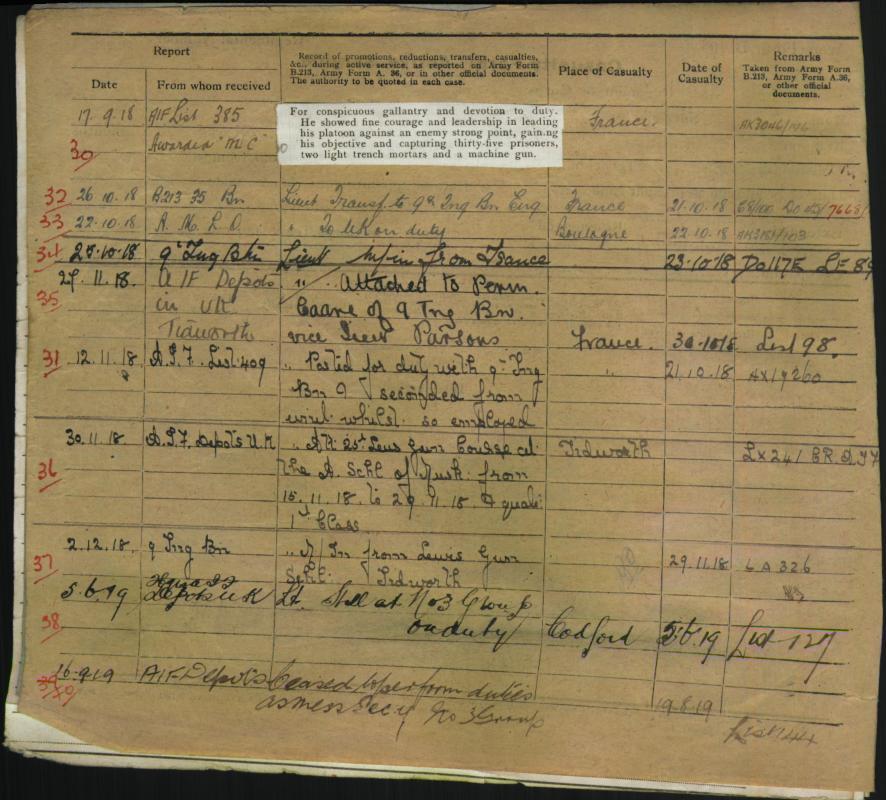 Report
Record of promotions, reductions, transfers, casualties, &c., during active service, as reported on Army Form B.213, Army Form A. 36, or in other official documents. The authority to be quoted in each case.
Place of Casualty
Date of Casualty
Remarks
Taken from Army Form B.213, Army Form A.36, or other official documents.
Date
From whom received
17.9.18 AIF List 385 France. AK3046/
30 Awarded "M C"
For conspicuous gallantry and devotion to duty.
He showed fine courage and leadership in leading
his platoon against an enemy strong point, gaining
his objective and capturing thirty-five prisoners,
two light trench mortars and a machine gun.
32 26.10.18 B213 35 Bn Lieut Transf. to 9th Tng Bn Eng France 21.10.18
33 22.10.18 A.M.L.O. " To UK on duty Boulogne 22.10.18 AK3181/103
34 23.10.18 9th Tng Btn Lieut M/in from France 23.10.18 Do117E LF 89
27.11.18. AIF Depots " Attached to Perm.
35 in UK Cadre of 9 Tng Bn.
Tidworth vice Lieut Parsons France. 30.10.18 List 98.
31 12.11.18 A.I.F. List 409 " Posted for duty with 9th Tng " 21.10.18
Bn & seconded from
unit whilst so employed
30.11.18. A.I.F. Depots U.K " Att 25th Lewis Gun Course at Tidworth LX241
36 the A. Schl of Musk. from
15.11.18. to 29.11.18. & quali:
1st Class
37 2.12.18. 9 Tng Bn " M/In from Lewis Gun 29.11.18 LA326
Schl. Tidworth
5.6.19 Depots UK Lt. Still at No3 Group
38 on duty Codford 5.6.19 List 127
39 16.9.19 AIF Depots Ceased to perform duties
as Mess Secy No 3 Group 19.8.19
List 144